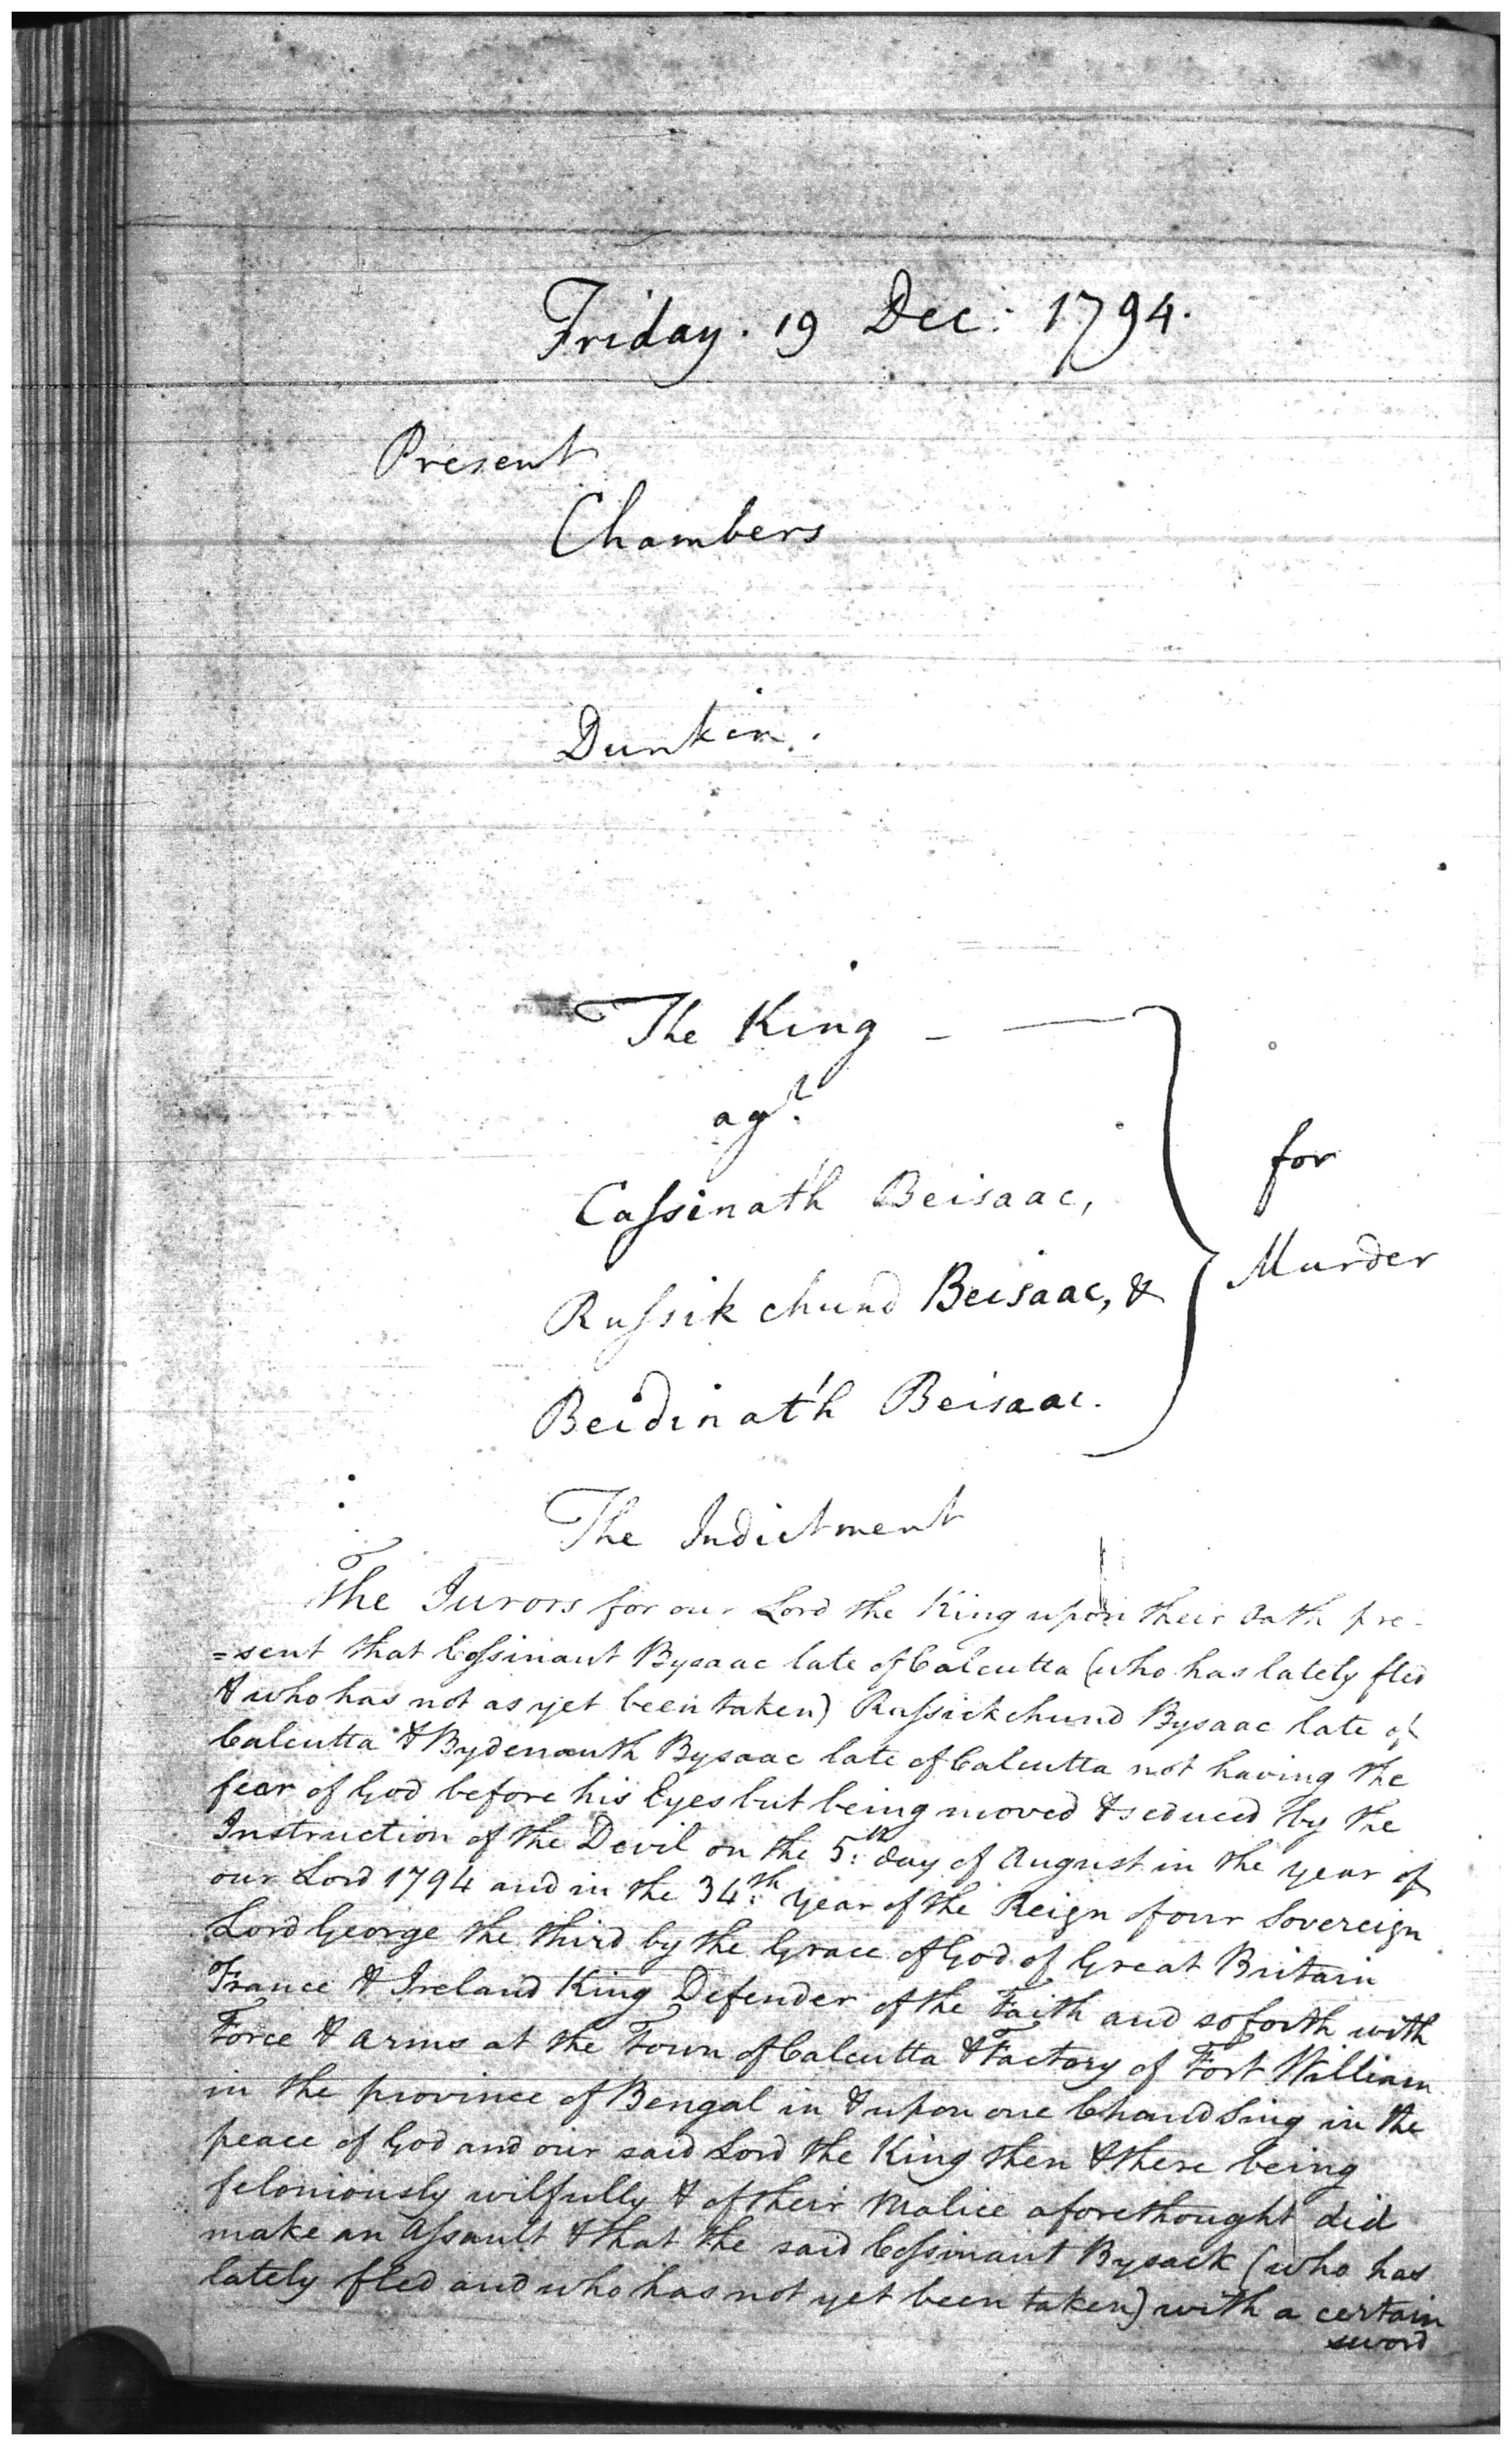 Friday. 19 Dec: 1794.
Present
Chambers
Dunkin.
The King — —
agt.
Caſsinath Beisaac,
Ruſsik chund Beisaac, &
Beidinath Beisaac.
for
Murder
The Indictment
The Jurors for our Lord the King upon their Oath pre-
=sent that Coſsinaut Bysaac late of Calcutta (who has lately fled
& who has not as yet been taken) Ruſsickchund Bysaac late of
Calcutta & Bydenauth Bysaac late of Calcutta not having the
fear of God before his Eyes but being moved & seduced by the
Instruction of the Devil on the 5:th day of August in the year of
our Lord 1794 and in the 34:th year of the Reign of our Sovereign
Lord George the third by the Grace of God of Great Britain
France & Ireland King Defender of the Faith and so forth with
Force & Arms at the Town of Calcutta & Factory of Fort William
in the province of Bengal in & upon one Chaund Sing in the
peace of God and our said Lord the King then & there being
feloniously wilfully & of their Malice aforethought did
make an Aſsault & that the said Coſsinaut Bysack (who has
lately fled and who has not yet been taken) with a certain
sword